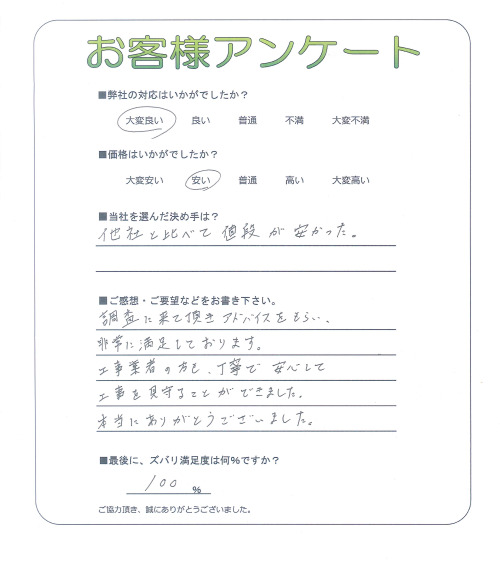 お客様アンケート
■弊社の対応はいかがでしたか?
大変良い 良い 普通 不満 大変不満
■価格はいかがでしたか?
大変安い 安い 普通 高い 大変高い
■当社を選んだ決め手は?
他社と比べて値段が安かった。
■ご感想・ご要望などをお書き下さい。
調査に来て頂きアドバイスをもらい、
非常に満足しております。
工事業者の方も、丁寧で安心して
工事を見守ることができました。
本当にありがとうございました。
■最後に、ズバリ満足度は何%ですか?
100 %
ご協力頂き、誠にありがとうございました。